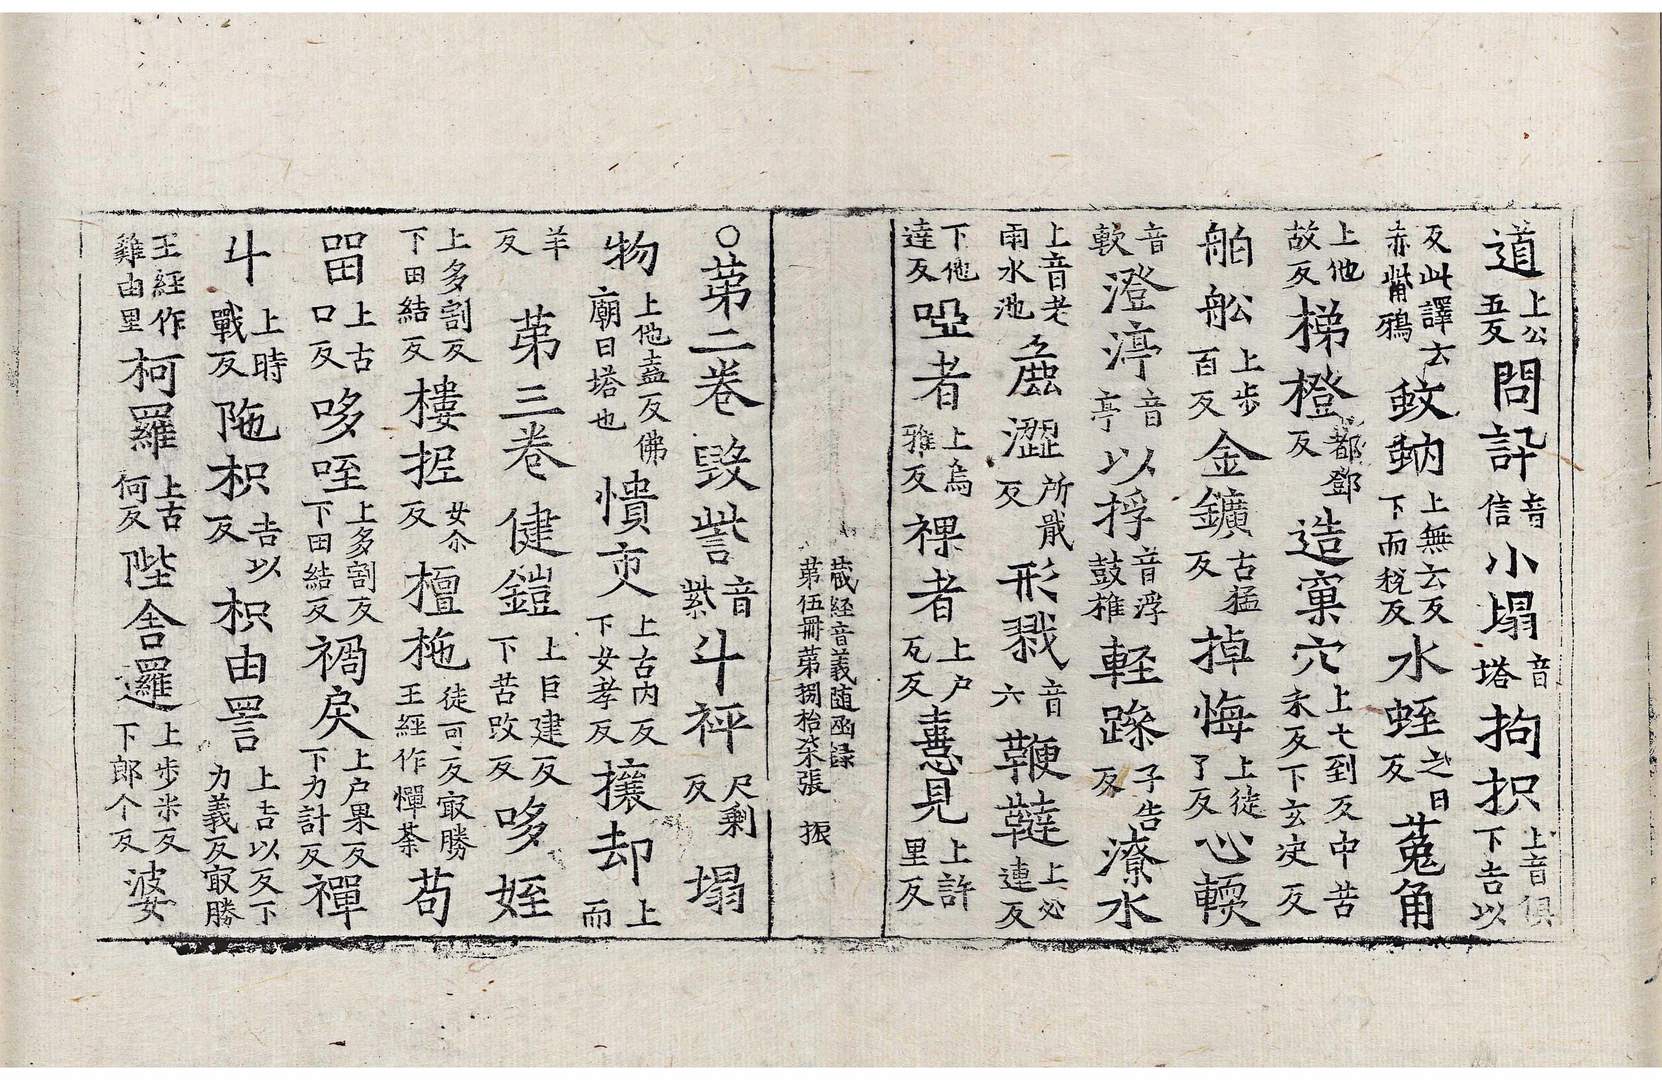 道上公五反問訊音信小塌音塔拘抧上音俱下吉以
反此譯云赤觜鵶蚊蚋上無云反下而稅反水蛭之日反菟角
上他故反梯橙都鄧反造窠穴上七到反中苦禾反下玄决反
舶舩上步百反金鑛古猛反掉悔上徒了反心輭
音軟澄渟音亭以捊音浮鼓搥輕躁子告反潦水
上音老雨水池麁澀所戢反形戮音六鞭韃上必連反
下他達反啞者上烏雅反裸者上户瓦反憙見上許里反
藏経音義随函録第伍冊苐捌拾柒張 振
○苐二卷毀訾音紫斗秤尺剩反塌
物上他盍反佛廟曰塔也憒丙上古内反下女孝反攘却上而
羊反 苐三卷健鎧上巨建反下苦改反哆姪
上多割反下田結反樓抳女尒反檀柂徒可反㝡勝王經作憚荼苟
㽞上古口反哆咥上多割反下田結反禍戾上户果反下力計反禪
斗上時戰反陁枳吉以反枳由詈上吉以反下力義反㝡勝
王經作雞由里柯羅上古何反陛舍羅邏上步米反下郎个反婆